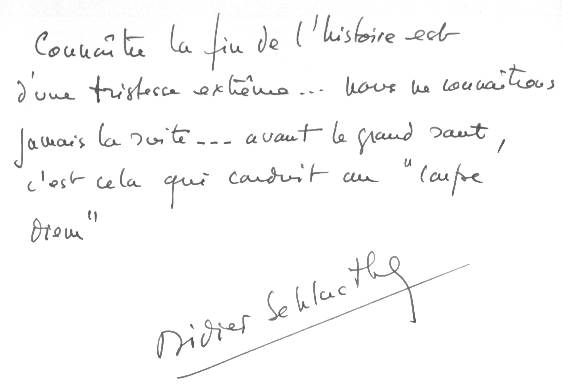 Connaître la fin de l'histoire est
d'une tristesse extrême... nous ne connaîtrons
jamais la suite --- avant le grand saut,
c'est cela qui conduit au "Carpe
Diem"
Didier Schlacther